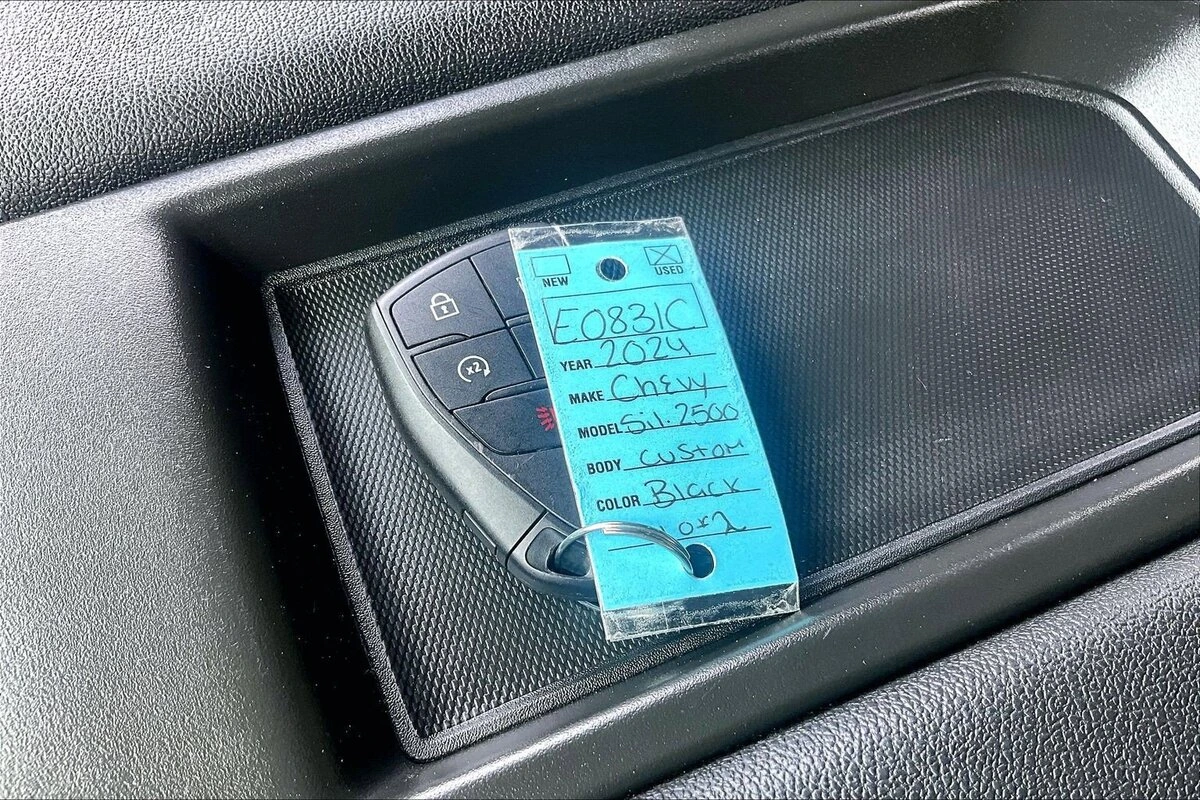 NEW USED
E0831C
YEAR 2024
MAKE Chevy
MODEL Sil. 2500
BODY custom
COLOR Black
x2